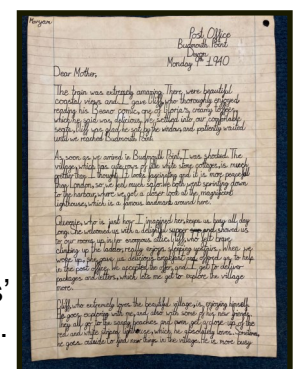 Morgan
Post Office
Budmouth Point
Devon
Monday 1st 1940
Dear Mother,
The train was extremely amazing. There were beautiful
coastal views and I gave Cliff, who thoroughly enjoyed
reading his Beano comic, one of Gloria's creamy toffees,
which he said was delicious. We settled into our comfortable
seats, Cliff was glad he sat by the window and patiently waited
until we reached Budmouth Point.
As soon as we arrived in Budmouth Point, I was shocked. The
village, which has rows of little white stone cottages, is much
prettier than I thought. It looks fascinating and it is more peaceful
than London, so we feel much safer. We both went sprinting down
to the harbour, where we got a closer look at the magnificent
lighthouse, which is a famous landmark around here.
Queenie, who is just how I imagined her, keeps us busy all day
long. She welcomed us with a delightful supper and showed us
to our rooms up in her enormous attic. Cliff, who felt brave
climbing up the ladder, really enjoys sleeping upstairs. When we
woke up, she gave us delicious breakfast and offered us to help
in the post office. We accepted the offer, and I get to deliver
packages and letters, which lets me get to explore the village
more.
Cliff, who extremely loves the beautiful village, is enjoying himself.
He goes exploring with me, and also with some of his new friends.
They all go to the sandy beaches and even get a close up of the
red and white stripey lighthouse, which he absolutely loves. Sometimes,
he goes outside to find new things in the village. He is more busy
s'
.